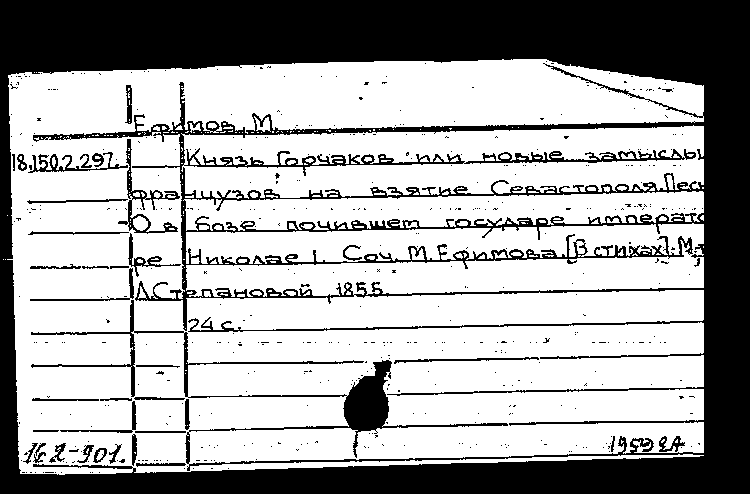 Ефимов, М.
18.150.2.297. Князь Горчаков или новые замыслы
французов на взятие Севастополя. Песн
- О в бозе почившем государе императо
ре Николае I. Соч. М. Ефимова. [В стихах]. М., т.
Л. Степановой, 1855.
24 с.
162-901.